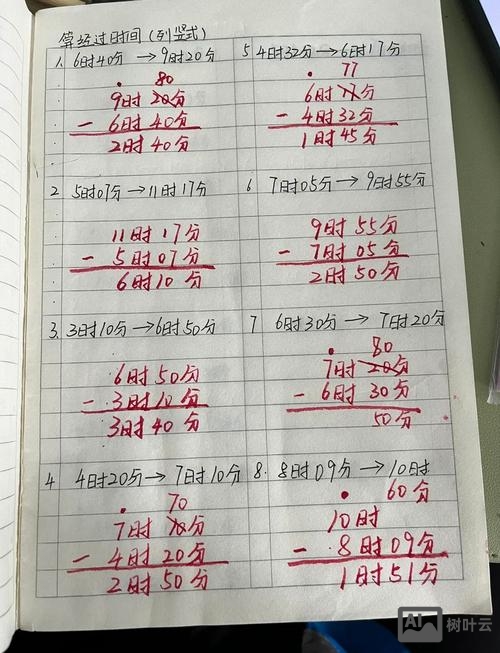 算经过时间(列竖式)
1. 6时40分→9时20分
80
9时20分
- 6时40分
2时40分
2 5时07分→11时17分
11时17分
- 5时07分
6时10分
3. 3时10分→6时50分
6时50分
- 3时10分
3时40分
4 4时20分→7时10分
70
7时10分
- 4时20分
2时50分
5 4时32分→6时17分
77
6时17分
- 4时32分
1时45分
6 7时05分→9时55分
9时55分
- 7时05分
2时50分
7 6时30分→7时20分
80
7时20分
- 6时30分
50分
8. 8时09分→10时
60分
10时
- 8时09分
1时51分
AI 树叶云